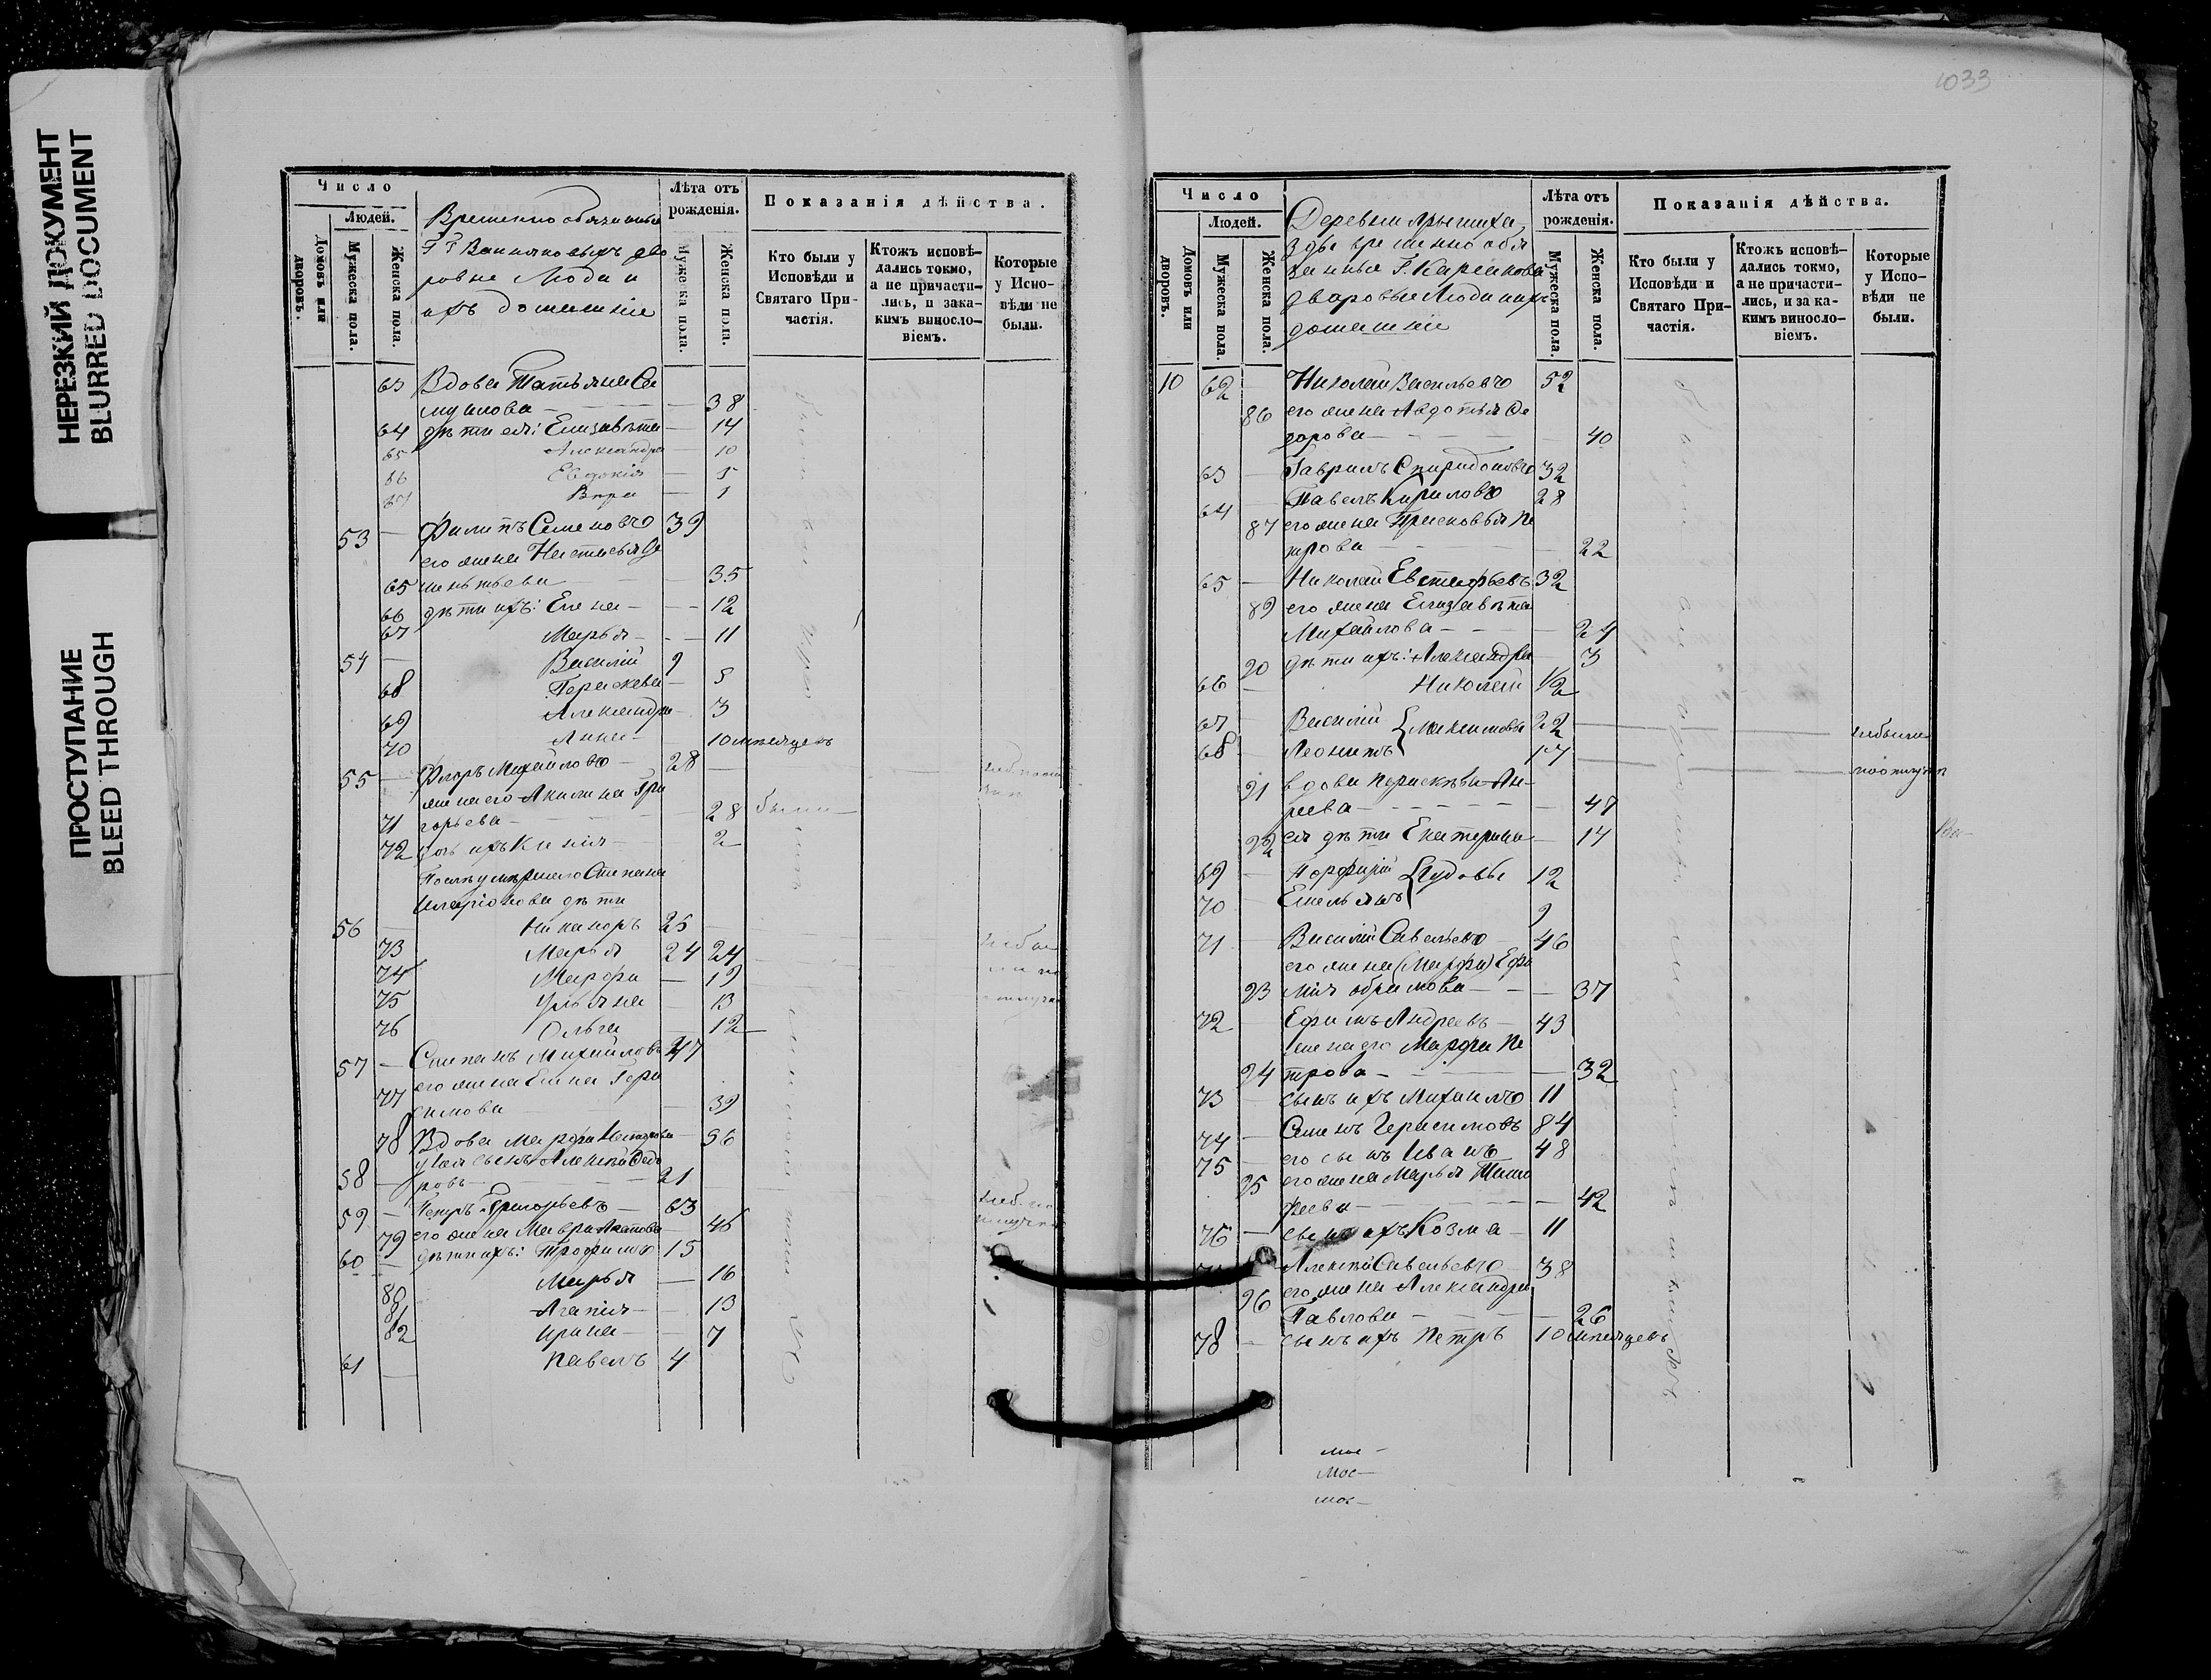 НЕРЕЗКИЙ ДОКУМЕНТ
BLURRED DOCUMENT
ПРОСТУПАНИЕ
BLEED THROUGH
Число
Людей.
Домовъ или дворовъ.
Мужеска пола.
Женска пола.
Временно обязанные
Г.г. дво
ровые Люди и
ихъ домашніе
Лѣта отъ рожденія.
Мужеска пола.
Женска пола.
Показанія дѣйства.
Кто были у Исповѣди и Святаго Причастія.
Ктожъ исповѣдались токмо, а не причастились, и за какимъ винословіемъ.
Которые у Исповѣди не были.
63 Вдова Татьяна Са
муилова — 38
64 дѣти ея: Елизавета — 14
65 Александра 10
66 Евдокія — 5
67 Вѣра — 1
53 — Филипъ Семеновъ 39
его жена Настасья
65 35
66 дѣти ихъ: Елена — 12
67 Марья — 11
54 — Василій 9
68 Параскева — 5
69 Александра — 3
70 Анна — 10 мѣсяцевъ
55 — Флоръ Михайловъ 28
жена его Акилина Гри
71 горьева — 28 были
72 дочь ихъ Ксенія — 2
Послѣ умершаго Степана
Иларіонова дѣти
56 — Никаноръ 25
73 Марья 24 24
74 Марфа — 19
75 Ульяна — 13
76 Ольга — 12
57 — Степанъ Михайловъ 47
77 его жена Елена Гера
симова — 39
78 Вдова Марфа — 56
у нея сынъ Алексѣй Федо
58 — ровъ 21
59 — Петръ Григорьевъ — 63
79 его жена Мавра — 45
60 — дѣти ихъ: Трофимъ 15
80 Марья — 16
81 Агапія — 13
82 Ирина — 7
61 — Павелъ 4
1033
Число
Людей.
Домовъ или дворовъ.
Мужеска пола.
Женска пола.
Деревни
временно обя
занные Г.
дворовые Люди и ихъ
домашніе
Лѣта отъ рожденія.
Мужеска пола.
Женска пола.
Показанія дѣйства.
Кто были у Исповѣди и Святаго Причастія.
Ктожъ исповѣдались токмо, а не причастились, и за какимъ винословіемъ.
Которые у Исповѣди не были.
10 62 — Николай Васильевъ 52
86 его жена Авдотья Фе
дорова — 40
63 — Гаврилъ Спиридоновъ 32
64 — Павелъ Кириловъ 28
87 его жена Прасковья Пе
трова — 22
65 — Николай Евстафьевъ 32
89 его жена Елизавета
Михайлова — 24
90 дѣти ихъ: Александра 3
66 — Николай 1/2
67 — Василій } Максимовы 22 — небыли
68 — Леонитъ 17 — поотлуч
91 вдова Параскева Ан
реева — 47
92 ея дѣти Екатерина — 14
69 — Порфирій 12
70 Емельянъ 9
71 — Василій Савельевъ 46
его жена (Марфа) Ефи
93 мія — 37
72 — Ефимъ Андреевъ — 43
жена его Марфа Пе
94 трова — 32
73 — сынъ ихъ Михаилъ 11
74 — Семенъ Герасимовъ 84
75 — его сынъ Иванъ 48
95 его жена Марья Тимо
феева — 42
76 — сынъ ихъ Козма — 11
Алексѣй Савельевъ 38
96 его жена Александра
Павлова — 26
78 — сынъ ихъ Петръ 10 мѣсяцевъ